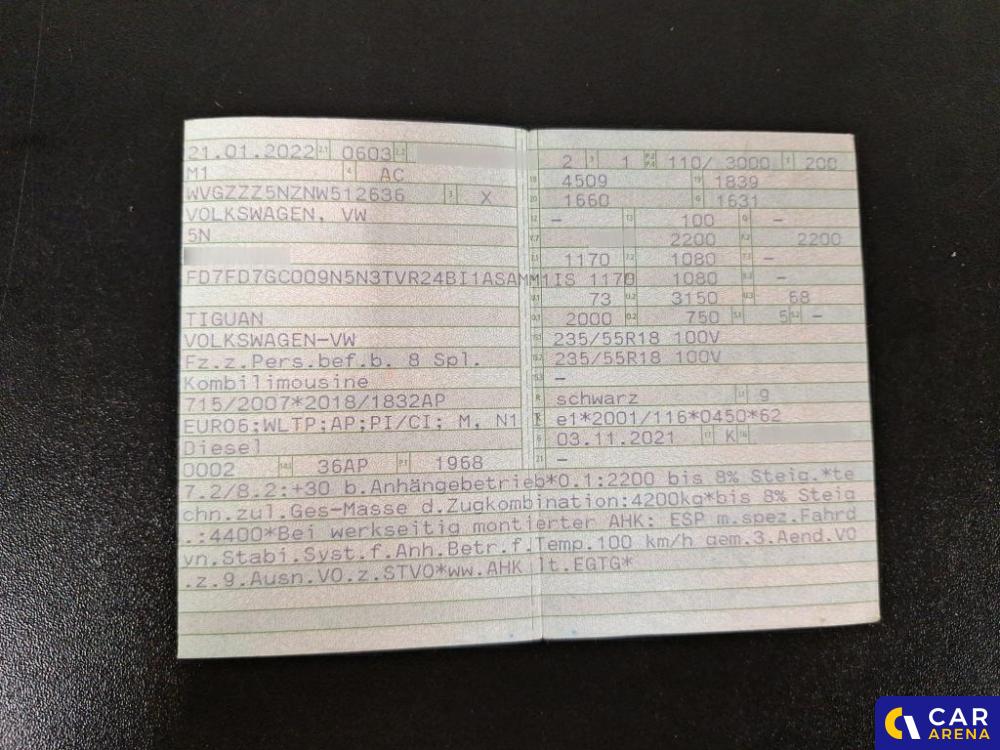 21.01.2022 2.1 0603 2.2
M1 4 AC
WVGZZZ5NZNW512636 3 X
VOLKSWAGEN, VW
5N
FD7FD7GC009N5N3TVR24BI1ASAMM1IS
TIGUAN
VOLKSWAGEN-VW
Fz.z.Pers.bef.b. 8 Spl.
Kombilimousine
715/2007*2018/1832AP
EURO6;WLTP;AP;PI/CI; M, N1
Diesel
0002 14.1 36AP P.1 1968
2 9 1 P.2 P.4 110/ 3000 T 200
18 4509 19 1839
20 1660 G 1631
12 – 13 100 Q –
2200 2200
1170 1080 –
1170 1080 –
73 U.2 3150 U.3 68
O.1 2000 O.2 750 S.1 5 S.2 –
15.1 235/55R18 100V
15.2 235/55R18 100V
–
R schwarz 11 9
K e1*2001/116*0450*62
6 03.11.2021 17 K 16
21 –
7.2/8.2:+30 b.Anhängebetrieb*O.1:2200 bis 8% Steig.*te
chn.zul.Ges-Masse d.Zugkombination:4200kg*bis 8% Steig
.:4400*Bei werkseitig montierter AHK: ESP m.spez.Fahrd
yn.Stabi.Syst.f.Anh.Betr.f.Temp.100 km/h gem.3.Aend.VO
.z.9.Ausn.VO.z.STVO*ww.AHK lt.EGTG*
CAR
ARENA